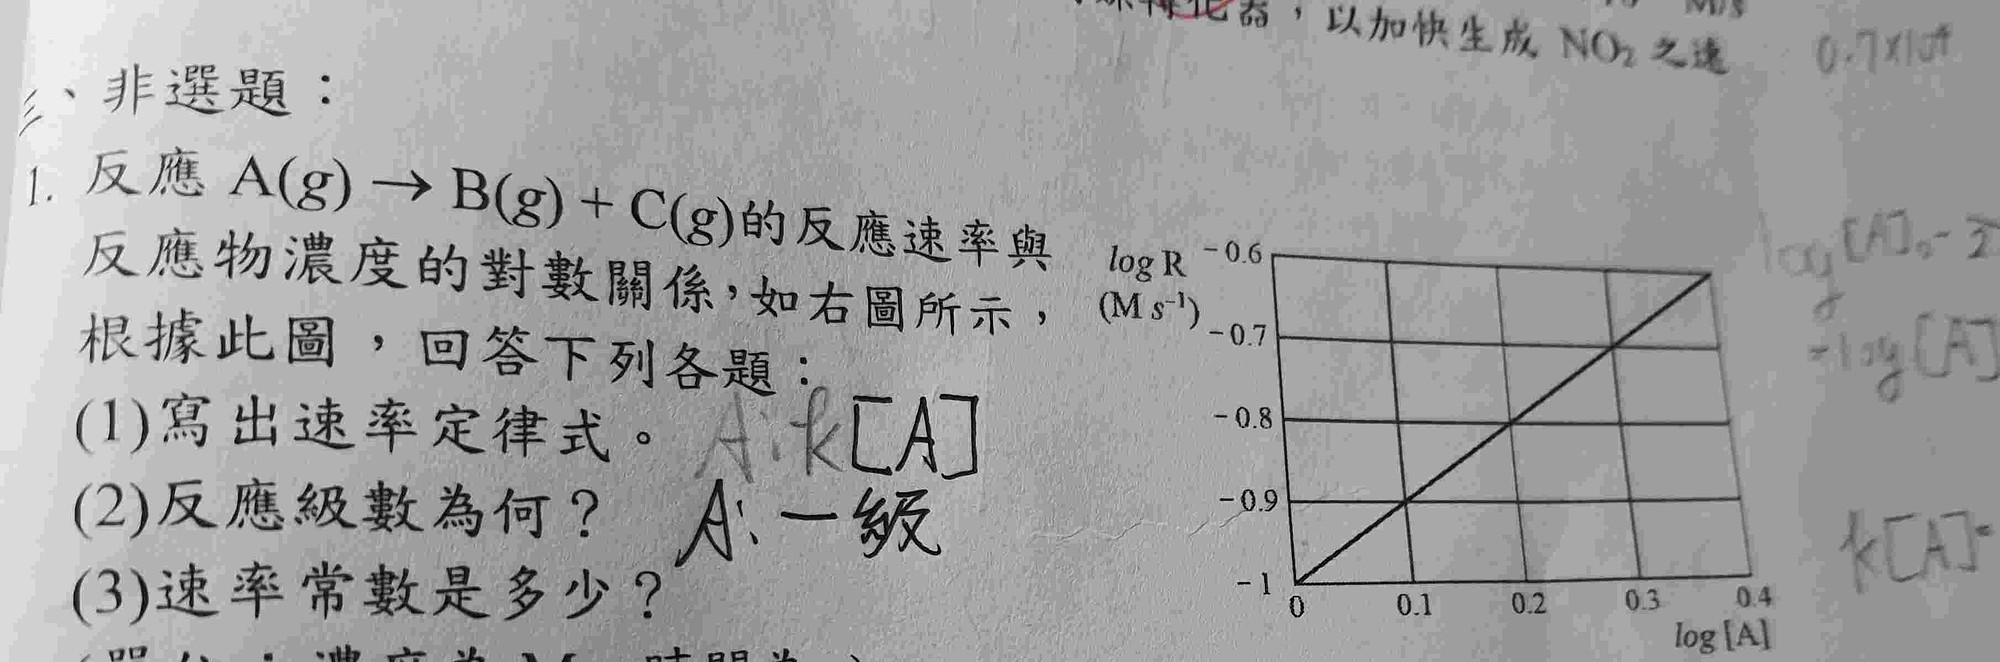 器，以加快生成 NO₂ 之速
0.7×10⁴
三、非選題：
1. 反應 A(g) → B(g) + C(g)的反應速率與
反應物濃度的對數關係，如右圖所示，
根據此圖，回答下列各題：
(1)寫出速率定律式。 A: k[A]
(2)反應級數為何？ A: 一級
(3)速率常數是多少？
log R
(M s⁻¹)
-0.6
-0.7
-0.8
-0.9
-1
0 0.1 0.2 0.3 0.4
log [A]
-log[A]
k[A]